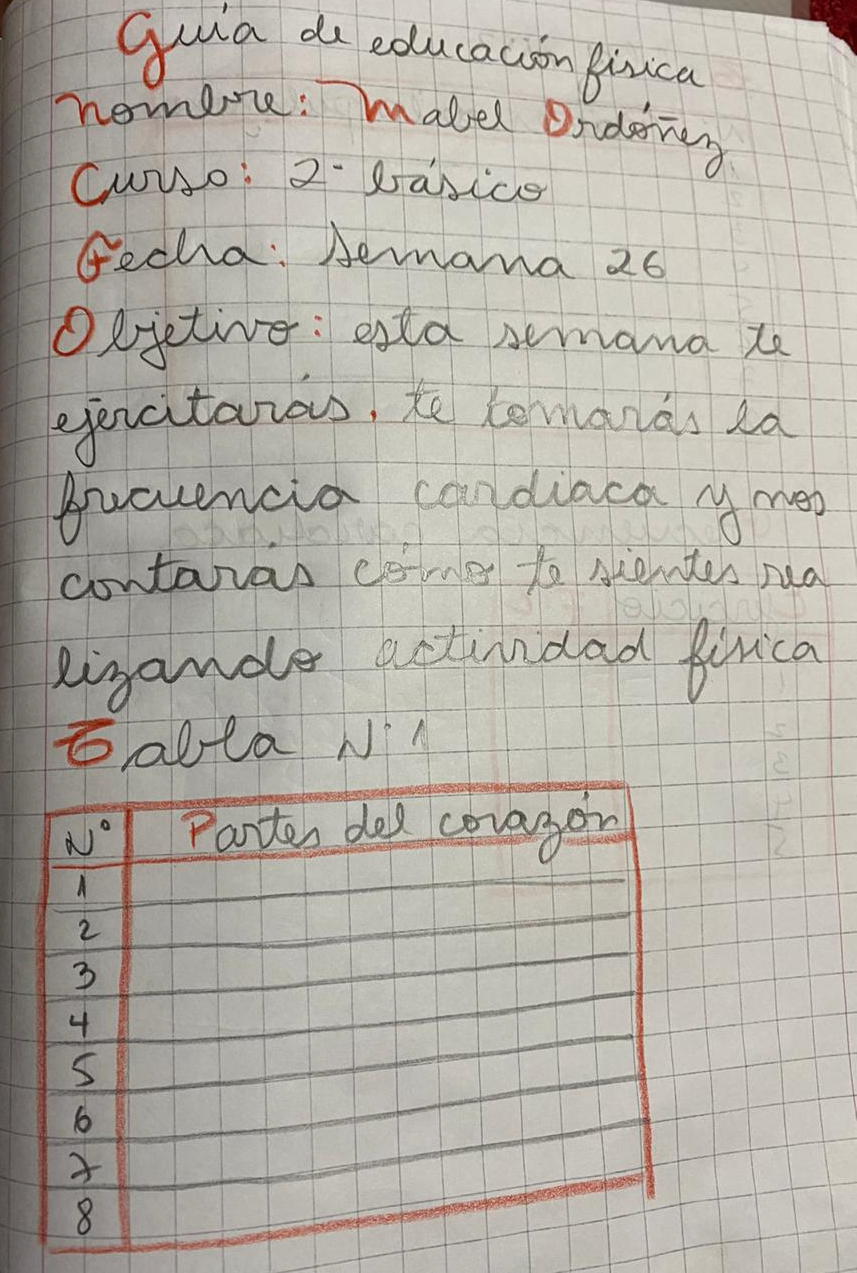 Guía de educación física
Nombre: Mabel Ordóñez
Curso: 2° básico
Fecha: Semana 26
Objetivo: esta semana te
ejercitarás, te tomarás la
frecuencia cardiaca y nos
contarás cómo te sientes rea
lizando actividad física
Tabla N° 1
N° Partes del corazón
1
2
3
4
5
6
7
8